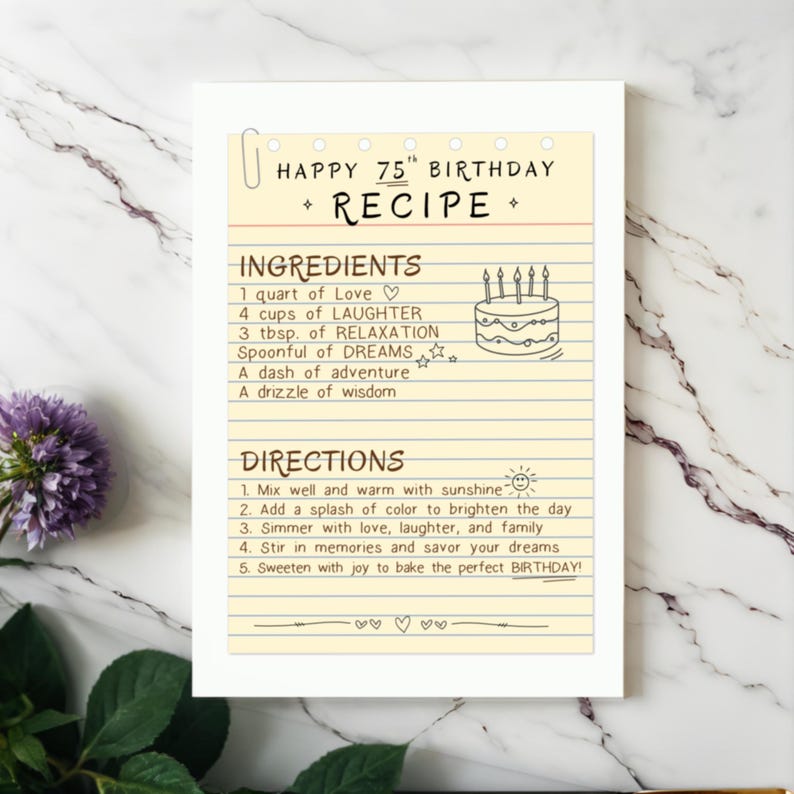 HAPPY 75th BIRTHDAY
RECIPE
INGREDIENTS
1 quart of Love
4 cups of LAUGHTER
3 tbsp. of RELAXATION
Spoonful of DREAMS
A dash of adventure
A drizzle of wisdom
DIRECTIONS
1. Mix well and warm with sunshine
2. Add a splash of color to brighten the day
3. Simmer with love, laughter, and family
4. Stir in memories and savor your dreams
5. Sweeten with joy to bake the perfect BIRTHDAY!